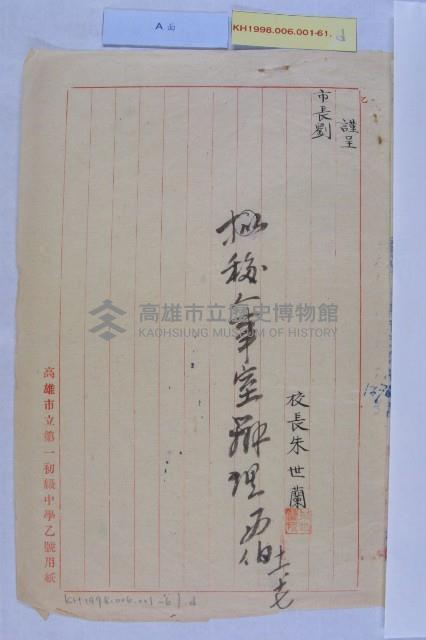 A面
KH1998.006.001-61.d
謹呈
市長劉
校長朱世蘭
擬移人事室辦理
高雄市立歷史博物館
KAOHSIUNG MUSEUM OF HISTORY
高雄市立第一初級中學乙號用紙
KH1998.006.001-61.d